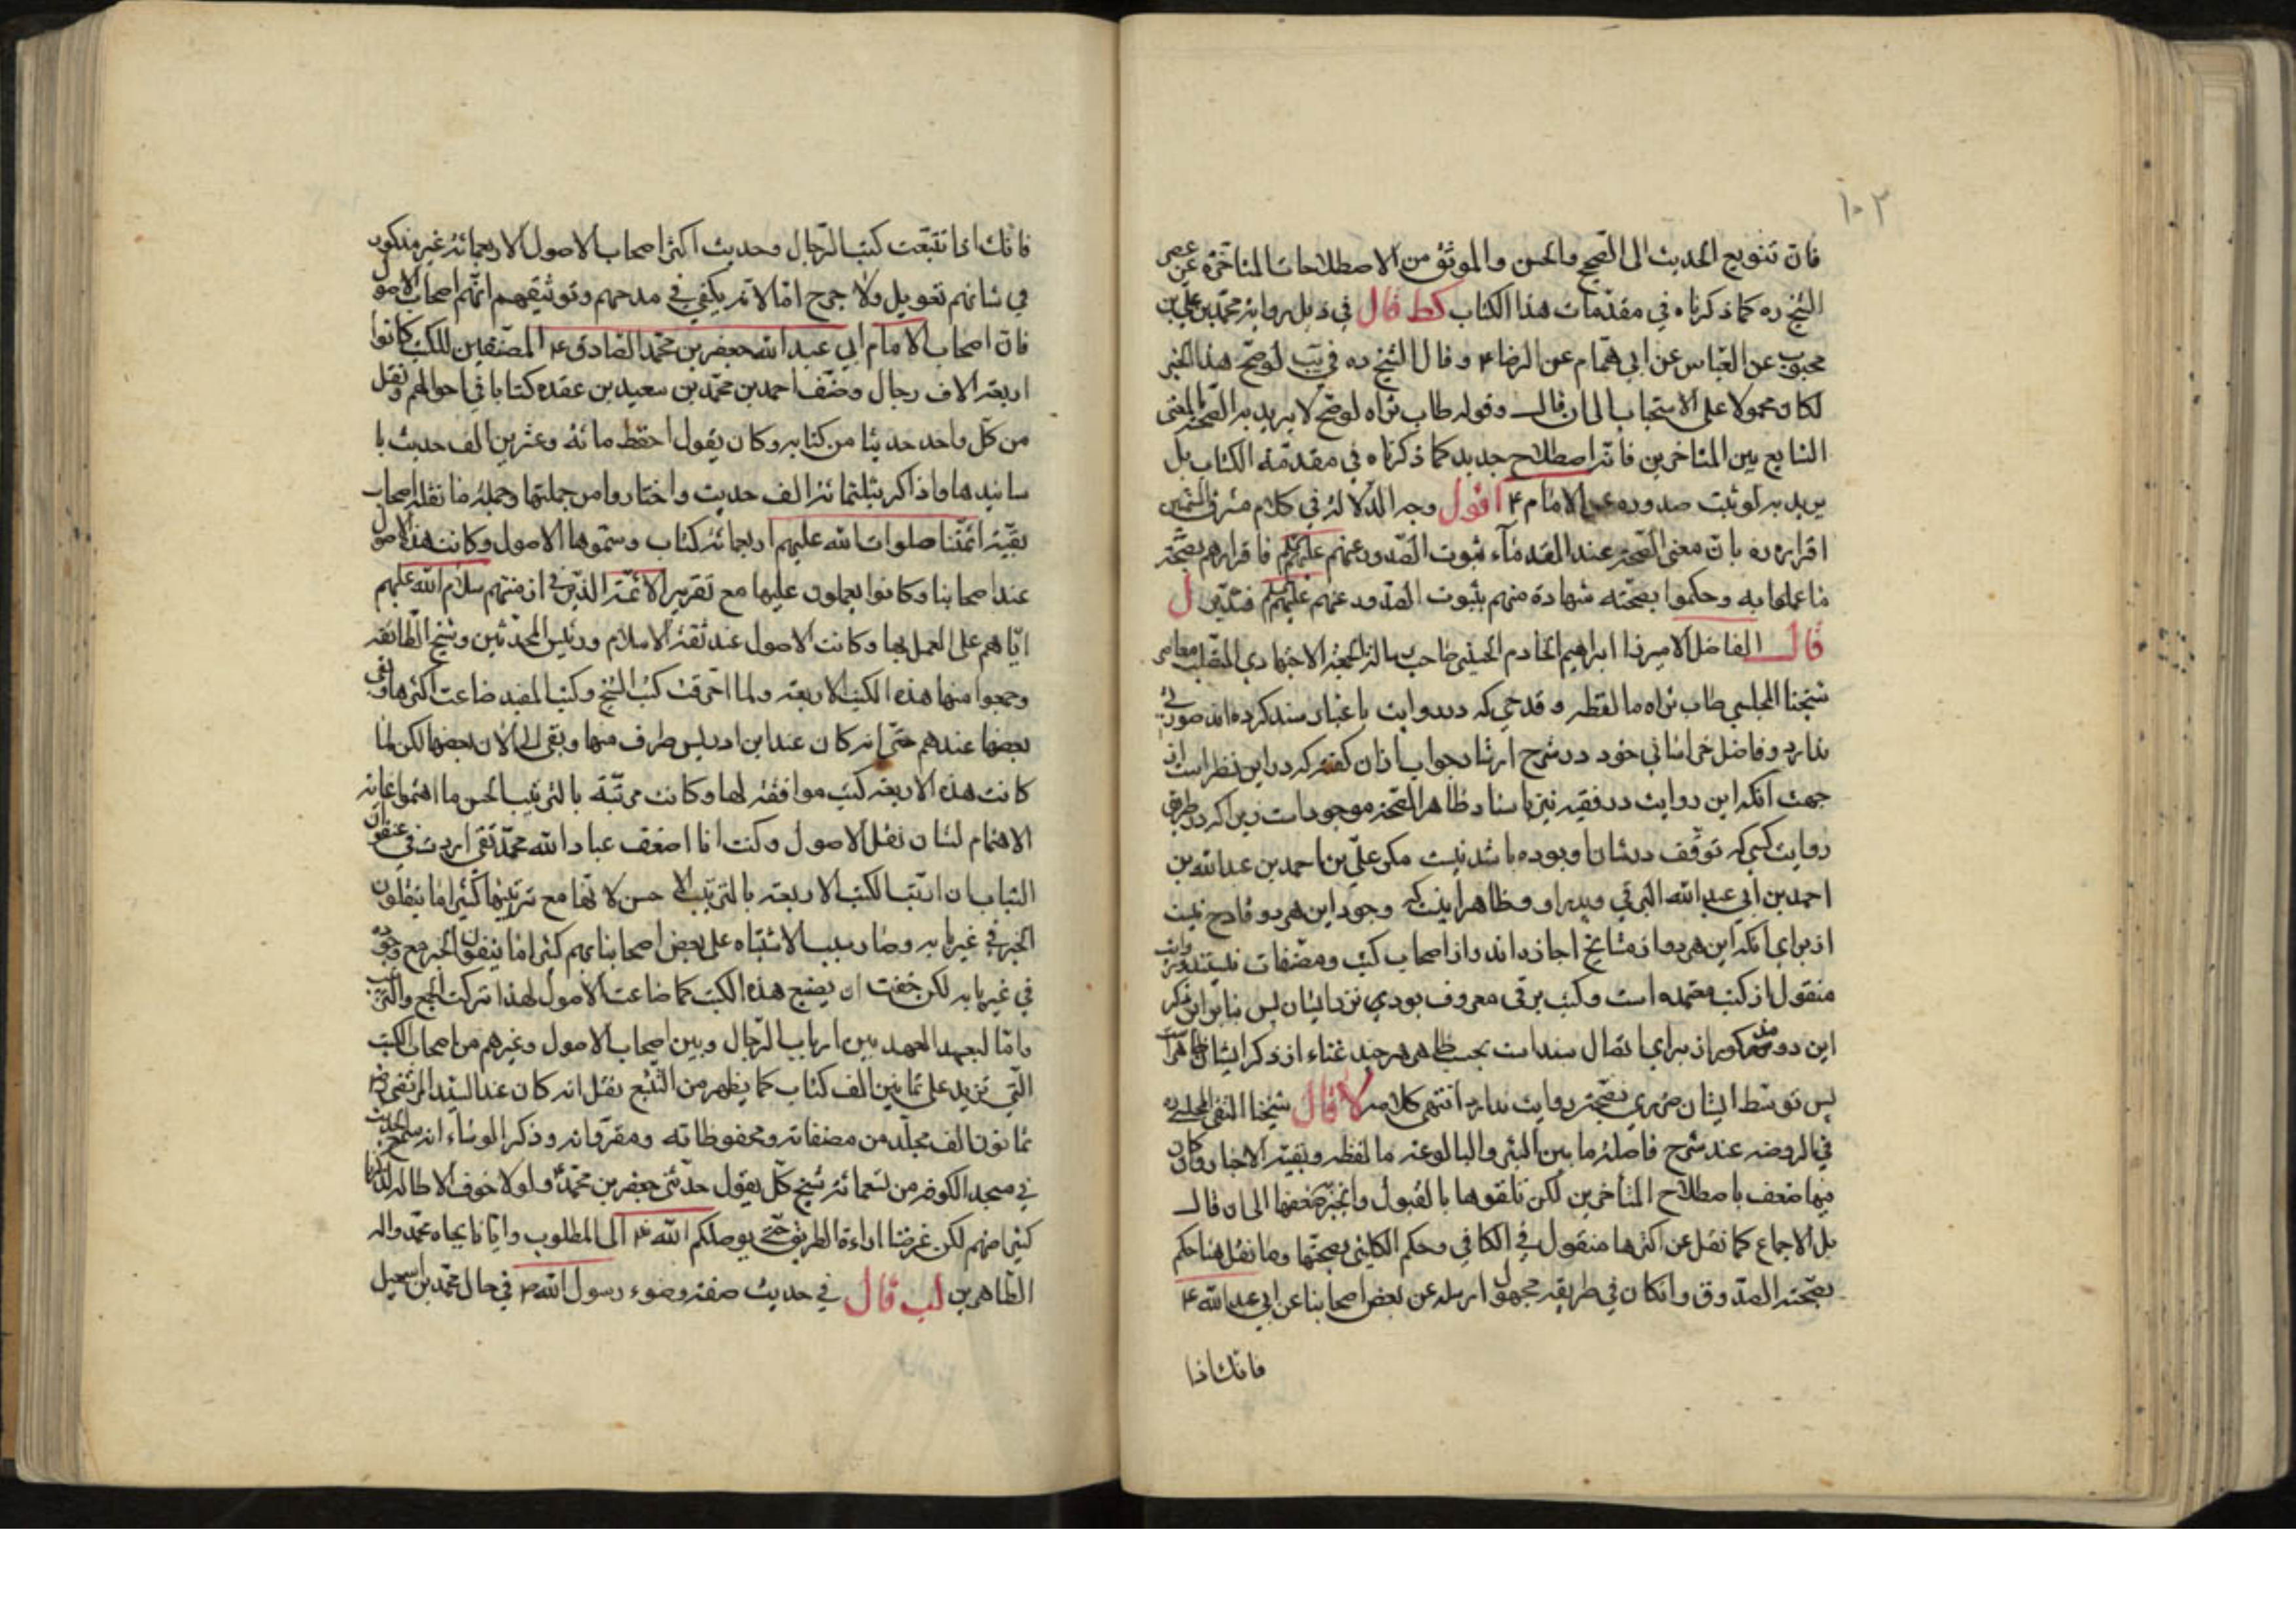 ١٠٢
فان تنويع الحديث الى الصحيح والحسن والموثق من الاصطلاحات المتأخرة عن عصر
الشيخ ره كما ذكرناه في مقدمات هذا الكتاب كط قال في ذيل رواية محمد بن علي بن
محبوب عن العباس عن ابي همام عن الرضا ۴ وقال الشيخ ره في يب لو صح هذا الخبر
لكان محمولا على الاستحباب الى ان قال وقوله طاب ثراه لو صح لا يريد به الصحة بالمعنى
الشايع بين المتاخرين فانه اصطلاح جديد كما ذكرناه في مقدمة الكتاب بل
يريد به لو ثبت صدوره عن الامام ۴ اقول وجه الدلالة في كلام مشرق الشمسين
اقراره ره بان معنى الصحة عند القدماء ثبوت الصدور عنهم عليهم فاقرارهم بصحة
ما عملوا به وحكموا بصحته شهادة منهم بثبوت الصدور عنهم عليهم فتدبر ل
قال الفاضل الامير ابراهيم الخادم الحسيني صاحب رسالة الجمعة الاجتهادي المتصلب معاصر
شيخنا المجلسي طاب ثراه ما لفظه و قدحي كه در روايت باعتبار سند كرده اند صورتي
ندارد و فاضل خراساني خود در شرح ارشاد جواب از ان كفته كه در اين نظر است از
جهت آنكه اين روايت در فقيه نيز باسناد ظاهر الصحة موجود است زيرا كه در طريق
روايت كسي كه توقف در شان او بوده باشد نيست مكر علي بن احمد بن عبدالله بن
احمد بن ابي عبد الله البرقي و پدر او و ظاهر اينست كه وجود اين هر دو قادح نيست
از براي آنكه اين هر دو از مشايخ اجازه اند و از اصحاب كتب و مصنفات نيستند و روايت
منقول از كتب معتمده است و كتب برقي معروف بودي نزد ايشان پس بنابراين ذكر
اين دو مذكور از براي اتصال سند است بحسب ظاهر هر چند غناء از ذكر ايشان ظاهر است
پس توسط ايشان ضرري بصحة روايت ندارد انتهى كلامه لا قال شيخنا التقي المجلسي ره
في الروضه عند شرح فاصلة ما بين البئر والبالوعه ما لفظه وبقية الاخبار وان كان
فيها ضعف باصطلاح المتأخرين لكن تلقوها بالقبول وانجبر ضعفها الى ان قال
بل الاجماع كما نقل عن اكثرها منقول في الكافي وحكم الكليني بصحتها وما نقل هنا حكم
بصحته الصدوق وانكان في طريقه مجهول ارسله عن بعض اصحابنا عن ابي عبد الله ۴
فانك اذا
فانك اذا تتبعت كتب الرجال وجدت اكثر اصحاب الاصول الاربعمائة غير مذكور
في شانهم تعديل ولا جرح اما لانه يكفي في مدحهم وتوثيقهم انهم اصحاب الاصول
فان اصحاب الامام ابي عبد الله جعفر بن محمد الصادق ۴ المصنفين للكتب كانوا
اربعة الاف رجال وصنف احمد بن محمد بن سعيد بن عقده كتابا في احوالهم ونقل
من كل واحد حديثا من كتابه وكان يقول احفظ مائة وعشرين الف حديث با
سانيدها واذاكر بثلثمائة الف حديث واختاروا من جملتها وجملة ما نقله اصحاب
بقية ائمتنا صلوات الله عليهم اربعمائة كتاب وسموها الاصول وكانت هذه الاصول
عند اصحابنا وكانوا يعملون عليها مع تقرير الائمة الذين في ازمنتهم سلام الله عليهم
اياهم على العمل بها وكانت الاصول عند ثقة الاسلام ورئيس المحدثين وشيخ الطائفة
وجمعوا منها هذه الكتب الاربعة ولما احرقت كتب الشيخ وكتب المفيد ضاعت اكثرها وبقى
بعضها عندهم حتى انه كان عند ابن ادريس طرف منها وبقى الى الان بعضها لكن لما
كانت هذه الاربعة كتب موافقة لها وكانت مرتبة بالترتيب الحسن ما اهتموا غاية
الاهتمام لشان نقل الاصول وكنت انا اضعف عباد الله محمد تقى اردت في عنفوان
الشباب ان ارتب الكتب الاربعة بالترتيب الاحسن لانها مع ترتيبها كثيرا ما ينقلون
الخبر في غير بابه وصار سبب الاشتباه على بعض اصحابنا بهم كثيرا ما ينفون الخبر مع وجوده
في غير بابه لكن خفت ان يضيع هذه الكتب كما ضاعت الاصول لهذا تركت الجمع والترتيب
واما لبعد العهد بين ارباب الرجال وبين اصحاب الاصول وغيرهم من اصحاب الكتب
التي تزيد على ثمانين الف كتاب كما يظهر من التتبع نقل انه كان عند السيد المرتضى رضه
ثمانون الف مجلد من مصنفاته ومحفوظاته ومقرواته وذكر الوشاء انه سمع الحديث
في مسجد الكوفه من تسعمائة شيخ كل يقول حدثني جعفر بن محمد ۴ ولولا خوف الاطالة لذكرنا
كثيرا منهم لكن غرضنا اراءة الطريق حتى يوصلكم الله ۴ الى المطلوب وايانا بجاه محمد واله
الطاهرين لب قال في حديث صفة وضوء رسول الله ص في حال محمد بن اسمعيل